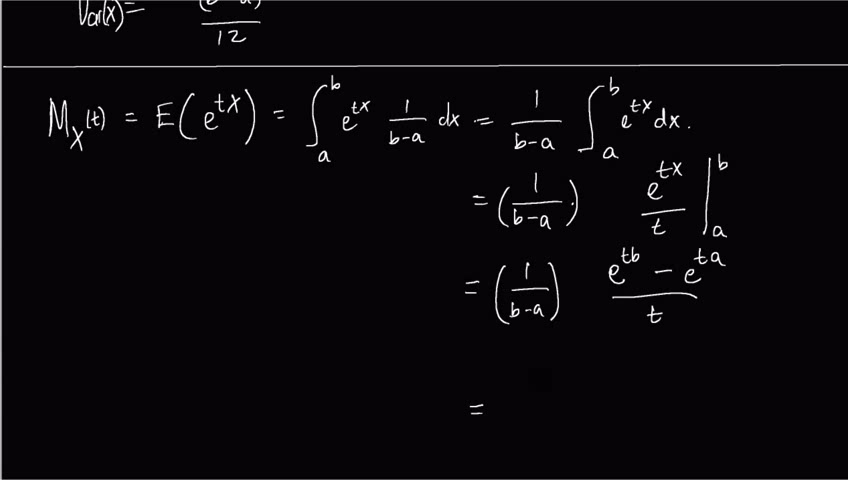 Var(x) = (b-a) / 12
M_X(t) = E(e^{tX}) = ∫_a^b e^{tx} 1/(b-a) dx = 1/(b-a) ∫_a^b e^{tx} dx.
= (1/(b-a)) · e^{tx}/t |_a^b
= (1/(b-a)) (e^{tb} - e^{ta})/t
=